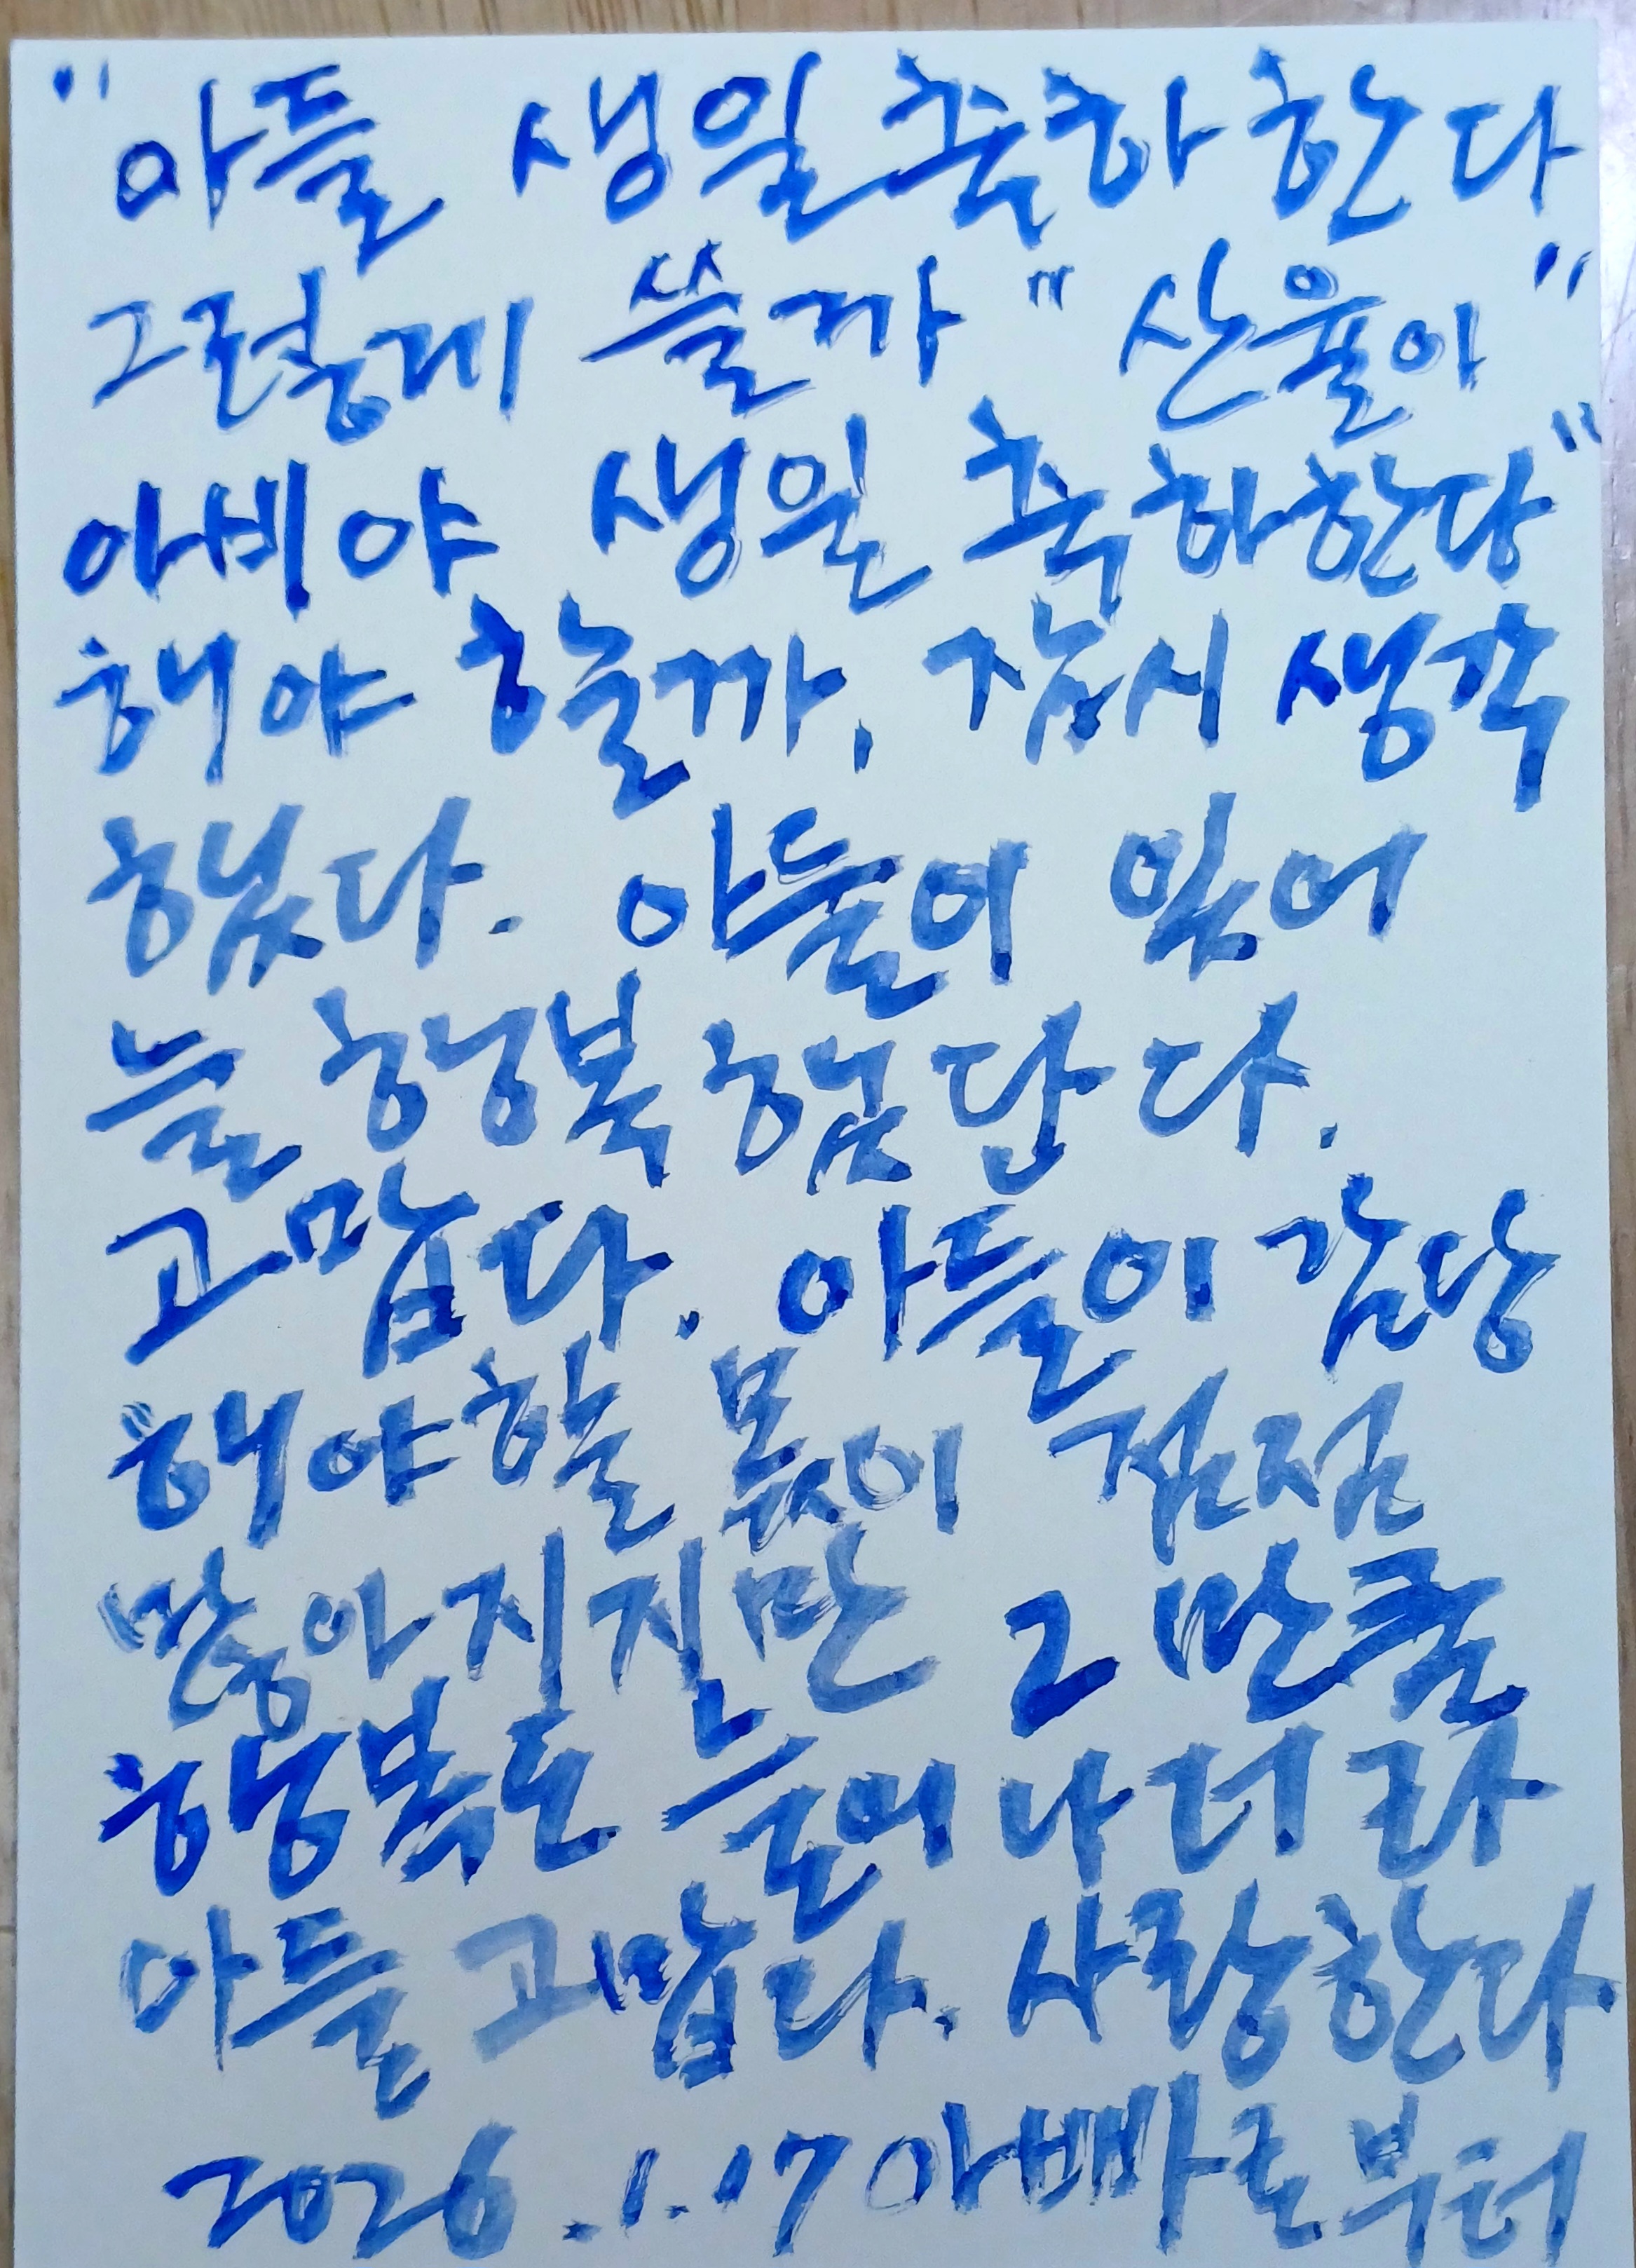 "아들 생일축하 한다
그렇게 쓸까" 산율아"
아범야 생일 축하한다"
해야 할까, 잠시 생각
했다. 아들이 있어
늘 행복 했단다.
고맙다. 아들이 감당
해야할 몫이 점점
많아지지만 그만큼
행복도 늘어나더라
아들 고맙다. 사랑한다
2026.1.17 아빠로부터